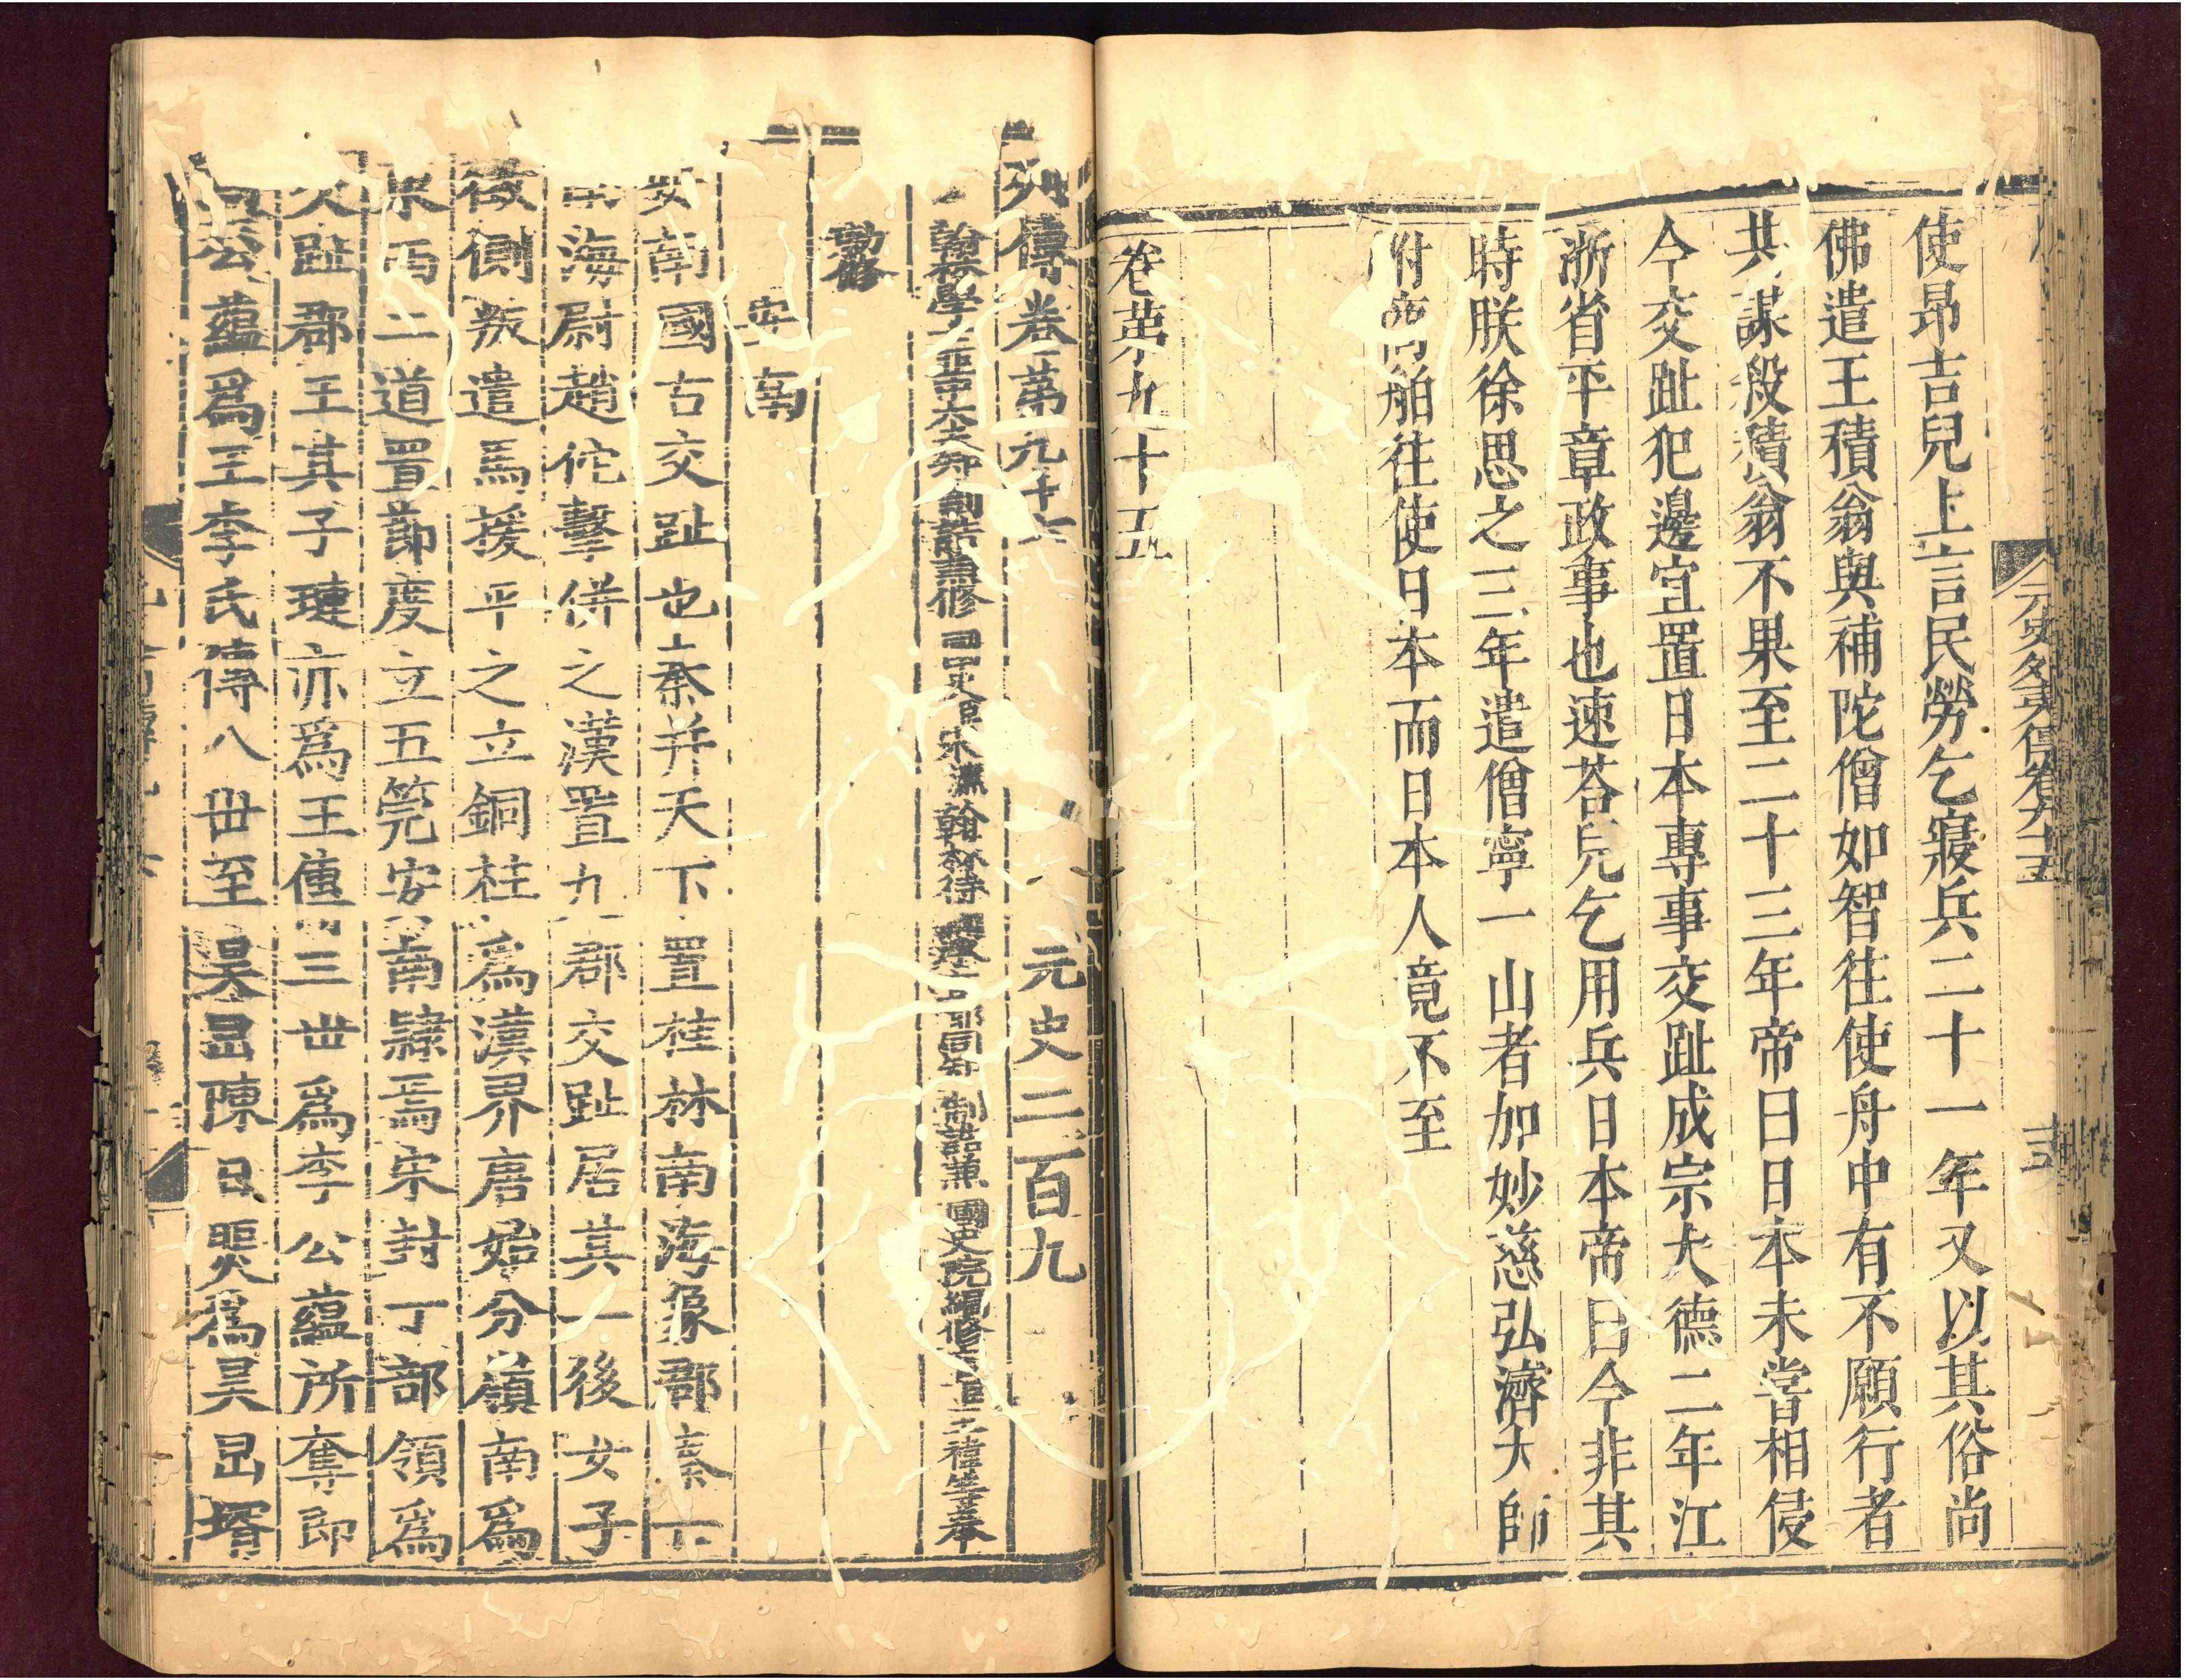 元史外夷傳卷九十五
十五
使昂吉兒上言民勞乞寢兵二十一年又以其俗尚
佛遣王積翁與補陀僧如智往使舟中有不願行者
共謀殺積翁不果至二十三年帝曰日本未嘗相侵
今交趾犯邊宜置日本專事交趾成宗大德二年江
浙省平章政事也速荅兒乞用兵日本帝曰今非其
時朕徐思之三年遣僧寧一山者加妙慈弘濟大師
附商舶往使日本而日本人竟不至
卷第九十五
列傳卷第九十六
元史二百九
翰林學士亞中大夫知制誥兼修國史臣宋濂翰林待制承直郎同知制誥兼國史院編修官臣王禕等奉
勅修
安南
安南國古交趾也秦并天下置桂林南海象郡秦亡
南海尉趙佗擊併之漢置九郡交趾居其一後女子
徵側叛遣馬援平之立銅柱爲漢界唐始分嶺南爲
東西二道置節度立五筦安南隸焉宋封丁部領爲
交趾郡王其子璉亦爲王傳三世爲李公蘊所奪即
封公蘊爲王李氏傳八世至昊旵陳日煚爲昊旵壻